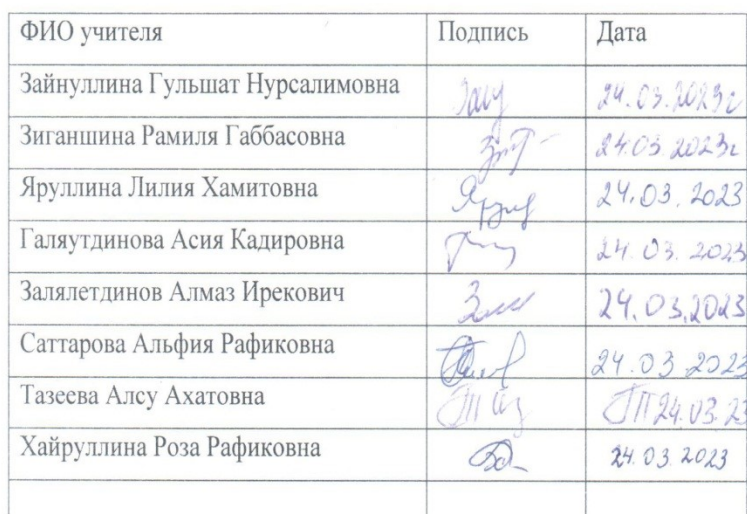 ФИО учителя Подпись Дата
Зайнуллина Гульшат Нурсалимовна 24.03.2023г
Зиганшина Рамиля Габбасовна 24.03.2023г
Яруллина Лилия Хамитовна 24.03.2023
Галяутдинова Асия Кадировна 24.03.2023
Залялетдинов Алмаз Ирекович 24.03.2023
Саттарова Альфия Рафиковна 24.03.2023
Тазеева Алсу Ахатовна 24.03.23
Хайруллина Роза Рафиковна 24.03.2023